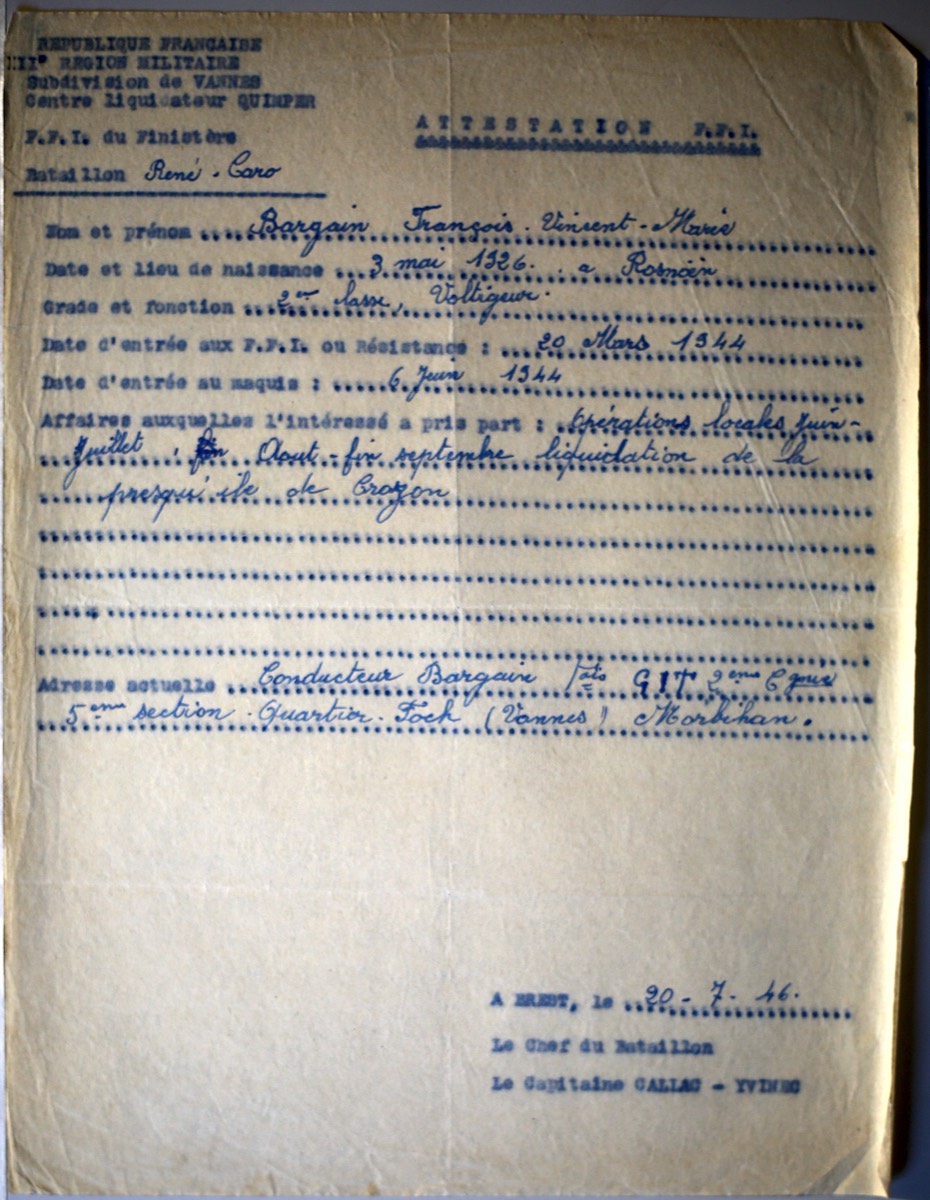 REPUBLIQUE FRANCAISE
XII° REGION MILITAIRE
Subdivision de VANNES
Centre liquidateur QUIMPER
F.F.I. du Finistère
Bataillon René - Caro
ATTESTATION F.F.I.
Nom et prénom Bargain François - Vincent - Marie
Date et lieu de naissance 3 mai 1926. a Rosnoën
Grade et fonction 2em classe, Voltigeur.
Date d'entrée aux F.F.I. ou Résistance : 20 Mars 1944
Date d'entrée au maquis : 6 Juin 1944
Affaires auxquelles l'intéressé a pris part : Opérations locales Juin-
Juillet, Aout - fin septembre liquidation de la
presqu'ile de Crozon
Adresse actuelle Conducteur Bargain GIT 2eme
5eme section - Quartier - Foch (Vannes) Morbihan.
A BREST, le 20 - 7 - 46.
Le Chef du Bataillon
Le Capitaine CALLAC - YVINEC